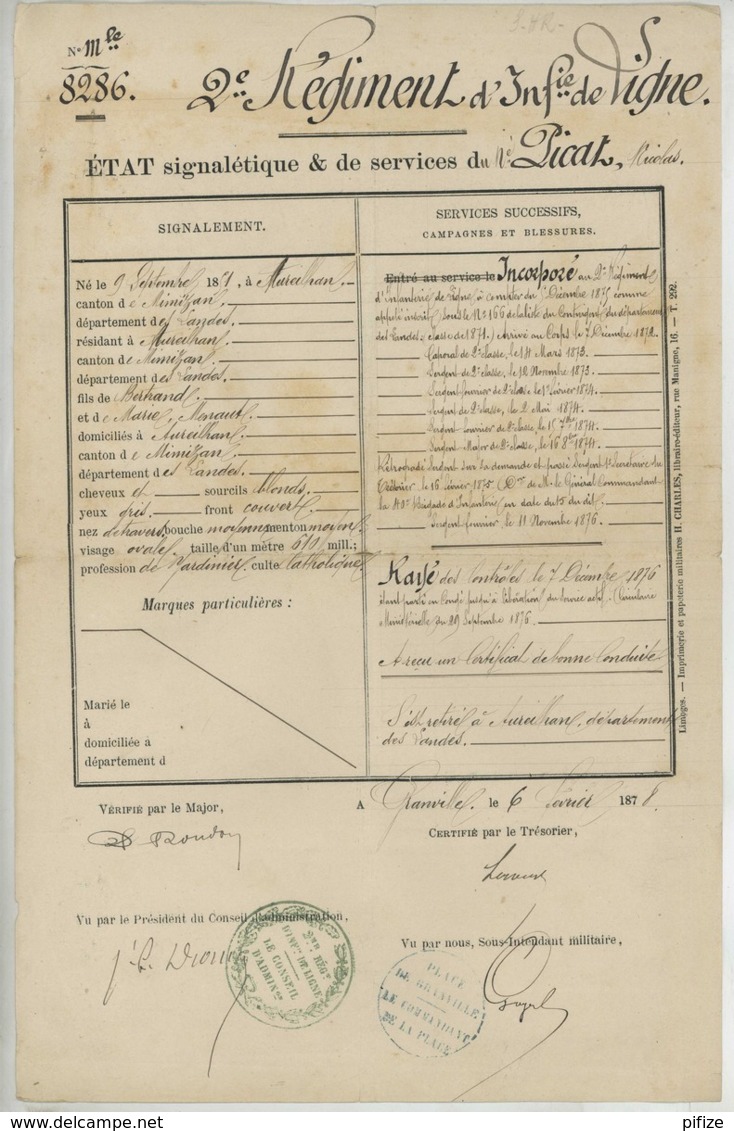 S-HR-
N° Mle
8286.
2e Régiment d'Infie de Ligne.
ÉTAT signalétique & de services du Né Picat, Nicolas.
SIGNALEMENT.
Né le 9 Septembre 1851, à Aureilhan.
canton de Mimizan.
département des Landes.
résidant à Aureilhan.
canton de Mimizan.
département des Landes.
fils de Bertrand
et de Marie, Menaut.
domiciliés à Aureilhan.
canton de Mimizan.
département des Landes.
cheveux et sourcils blonds.
yeux gris. front couvert.
nez de travers bouche moyenne menton moyen
visage ovale. taille d'un mètre 610 mill.;
profession de Jardinier culte Catholique
Marques particulières :
Marié le
à
domiciliée à
département d
SERVICES SUCCESSIFS,
CAMPAGNES ET BLESSURES.
Entré au service le Incorporé au 2e Régiment
d'Infanterie de Ligne à compter du Décembre 1875 comme
appelé inscrit sous le N° 166 de la liste du Contingent du département
des Landes, classe de 1871.) Arrivé au Corps le 7 Décembre 1872.
Caporal de 2e classe, le 14 Mars 1873.
Sergent de 2e classe, le 12 Novembre 1873.
Sergent fourrier de 2e classe le 1er février 1874.
Sergent de 2e classe, le 2 Mai 1874.
Sergent fourrier de 2e classe, le 15 7bre 1874.
Sergent Major de 2e classe, le 16 8bre 1874.
Rétrogradé Sergent sur sa demande et passé Sergent 1er Secrétaire du
Trésorier le 16 février 1875 (Don de M. le Général Commandant
la 40e Brigade d'Infanterie en date du 15 du dit.
Sergent fourrier, le 11 Novembre 1876.
Rayé des Contrôles le 7 Décembre 1876
étant parti en Congé jusqu'à libération du service actif. (Circulaire
Ministérielle du 29 Septembre 1876.
A reçu un Certificat de bonne Conduite
S'est retiré à Aureilhan, département
des Landes.
Limoges. — Imprimerie et papeterie militaires H. CHARLES, libraire-éditeur, rue Manigne, 16. — T. 292.
A Granville, le 6 février 1878.
VÉRIFIÉ par le Major,
CERTIFIÉ par le Trésorier,
Vu par le Président du Conseil d'administration,
Vu par nous, Sous-Intendant militaire,
2me RÉGt
D'INFie DE LIGNE
LE CONSEIL
D'ADMINon
PLACE
DE GRANVILLE
LE COMMANDANT
DE LA PLACE
pifize